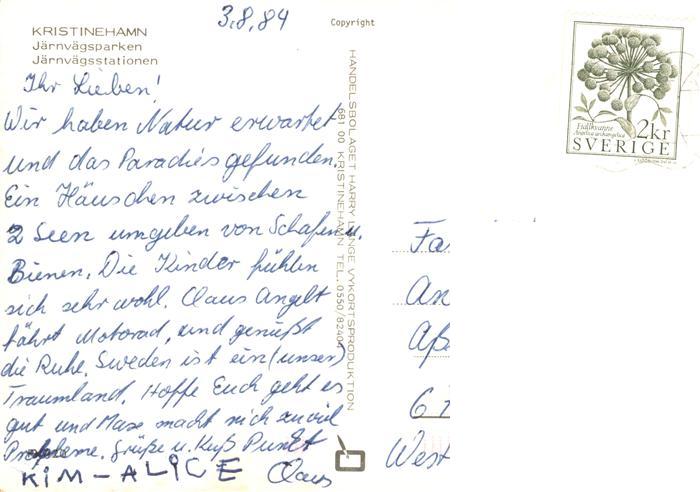 3.8.84
KRISTINEHAMN
Järnvägsparken
Järnvägsstationen
Copyright
Ihr Lieben!
Wir haben Natur erwartet
und das Paradies gefunden.
Ein Häuschen zwischen
2 Seen umgeben von Schafen u.
Bienen. Die Kinder fühlen
sich sehr wohl. Claus Angelt
fährt Motorad, und genießt
die Ruhe. Sweden ist ein (unser)
Traumland. Hoffe Euch geht es
gut und Maxe macht nich zuviel
Probleme. Grüße u. Kuß
KIM-ALICE Claus
HANDELSBOLAGET HARRY LINGE, VYKORTSPRODUKTION
681 00 KRISTINEHAMN TEL. 0550/82404
Fjällkvanne
Angelica archangelica
2kr
SVERIGE
Fa
An
Aß
6
West